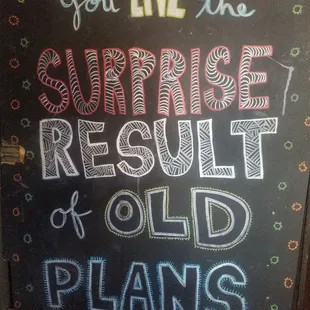 you LIVE the
SURPRISE
RESULT
of OLD
PLANS